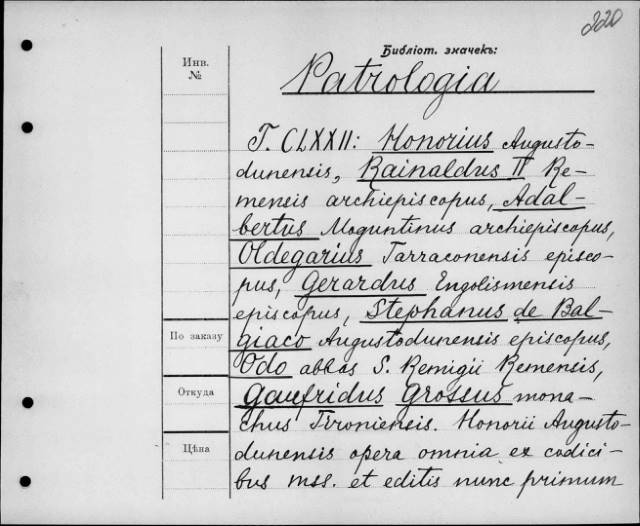 220
Библіот. значекъ:
Инв.
№
Patrologia
T. CLXXII: Honorius Augusto-
dunensis, Rainaldus II Re-
mensis archiepiscopus, Adal-
bertus Moguntinus archiepiscopus,
Oldegarius Tarraconensis episco-
pus, Gerardus Engolismensis
episcopus, Stephanus de Bal-
По заказу
giaco Augustodunensis episcopus,
Odo abbas S. Remigii Remensis,
Откуда
Gaufridus Grossus mona-
chus Tironiensis. Honorii Augusto-
Цѣна
dunensis opera omnia ex codici-
bus mss. et editis nunc primum